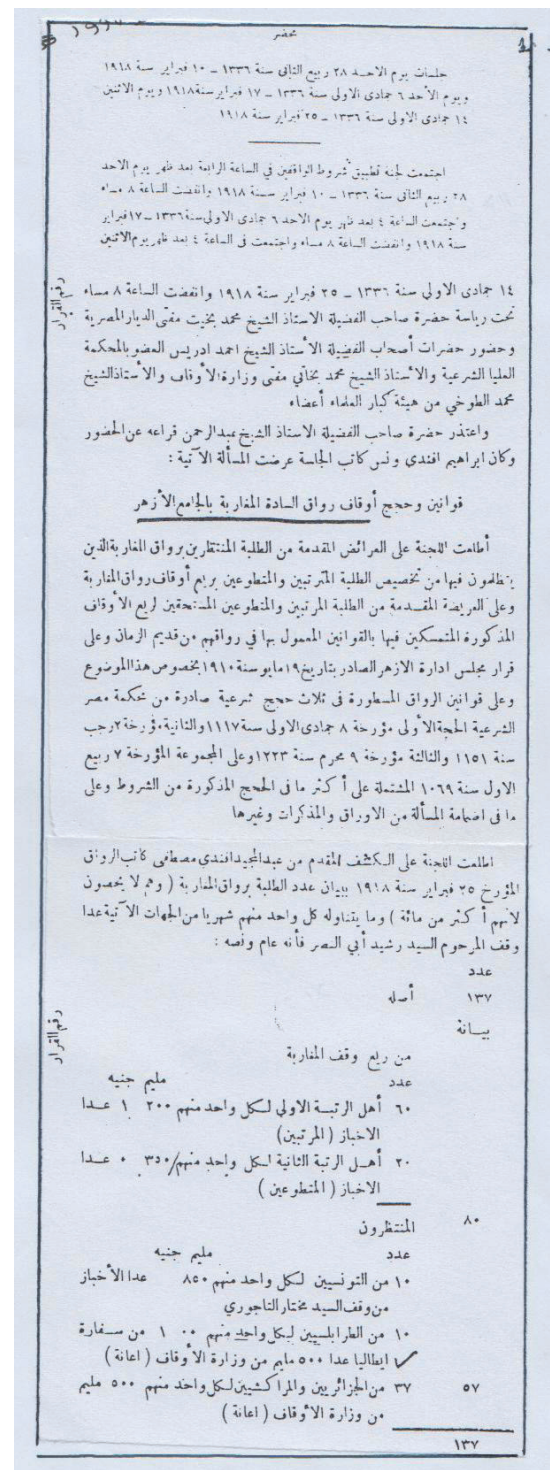 محضر
جلسات يوم الاحد ٢٨ ربيع الثانى سنة ١٣٣٦ – ١٠ فبراير سنة ١٩١٨
ويوم الأحد ٦ جمادى الاولى سنة ١٣٣٦ – ١٧ فبراير سنة ١٩١٨ ويوم الاثنين
١٤ جمادى الاولى سنة ١٣٣٦ – ٢٥ فبراير سنة ١٩١٨
اجتمعت لجنة تطبيق شروط الواقفين في الساعة الرابعة بعد ظهر يوم الاحد
٢٨ ربيع الثانى سنة ١٣٣٦ – ١٠ فبراير سنة ١٩١٨ وانفضت الساعة ٨ مساء
واجتمعت الساعة ٤ بعد ظهر يوم الاحد ٦ جمادى الاولى سنة ١٣٣٦ – ١٧ فبراير
سنة ١٩١٨ وانفضت الساعة ٨ مساء واجتمعت فى الساعة ٤ بعد ظهر يوم الاثنين
رقم القرار
١٤ جمادى الاولى سنة ١٣٣٦ – ٢٥ فبراير سنة ١٩١٨ وانفضت الساعة ٨ مساء
تحت رياسة حضرة صاحب الفضيلة الاستاذ الشيخ محمد بخيت مفتى الديار المصرية
وحضور حضرات أصحاب الفضيلة الأستاذ الشيخ احمد ادريس العضو بالمحكمة
العليا الشرعية والأستاذ الشيخ محمد بخاتي مفتى وزارة الأوقاف والأستاذ الشيخ
محمد الطوخي من هيئة كبار العلماء أعضاء
واعتذر حضرة صاحب الفضيلة الاستاذ الشيخ عبد الرحمن قراعه عن الحضور
وكان ابراهيم افندى ونس كاتب الجلسة عرضت المسألة الآتية :
قوانين وحجج أوقاف رواق السادة المغاربة بالجامع الأزهر
أطلعت اللجنة على العرائض المقدمة من الطلبة المنتظرين برواق المغاربة الذين
يتظلمون فيها من تخصيص الطلبة المرتبين والمتطوعين بريع أوقاف رواق المغاربة
وعلى العريضة المقدمة من الطلبة المرتبين والمتطوعين المستحقين لريع الأوقاف
المذكورة المتمسكين فيها بالقوانين المعمول بها في رواقهم من قديم الزمان وعلى
قرار مجلس ادارة الازهر الصادر بتاريخ ١٩ مايو سنة ١٩١٠ بخصوص هذا الموضوع
وعلى قوانين الرواق المسطورة فى ثلاث حجج شرعية صادرة من محكمة مصر
الشرعية الحجة الأولى مؤرخة ٨ جمادى الاولى سنة ١١١٧ والثانية مؤرخة ٢ رجب
سنة ١١٥١ والثالثة مؤرخة ٩ محرم سنة ١٢٢٣ وعلى المجموعة المؤرخة ٧ ربيع
الاول سنة ١٠٦٩ المشتملة على أكثر ما فى الحجج المذكورة من الشروط وعلى
ما فى اضمامة المسألة من الاوراق والمذكرات وغيرها
اطلعت اللجنة على الكشف المقدم من عبد المجيد افندى مصطفى كاتب الرواق
المؤرخ ٢٥ فبراير سنة ١٩١٨ ببيان عدد الطلبة برواق المغاربة ( وهم لا يحصون
لأنهم أكثر من مائة ) وما يتناوله كل واحد منهم شهريا من الجهات الآتية عدا
وقف المرحوم السيد رشيد أبي النصر فأنه عام ونصه :
عدد
١٣٧ أصله
بيانة
رقم القرار
من ريع وقف المغاربة
عدد مليم جنيه
٦٠ أهل الرتبة الاولى لكل واحد منهم ٢٠٠ ١ عدا
الاخباز ( المرتبين )
٢٠ أهل الرتبة الثانية لكل واحد منهم/٣٥٠ ٠ عدا
الاخباز ( المتطوعين )
٨٠ المنتظرون
عدد مليم جنيه
١٠ من التونسيين لكل واحد منهم ٨٥٠ عدا الأخباز
من وقف السيد مختار التاجوري
١٠ من الطرابلسيين لكل واحد منهم ٠٠ ١ من سفارة
ايطاليا عدا ٥٠٠ مليم من وزارة الأوقاف ( اعانة )
٥٧ ٣٧ من الجزائريين والمراكشيين لكل واحد منهم ٥٠٠ مليم
من وزارة الأوقاف ( اعانة )
١٣٧